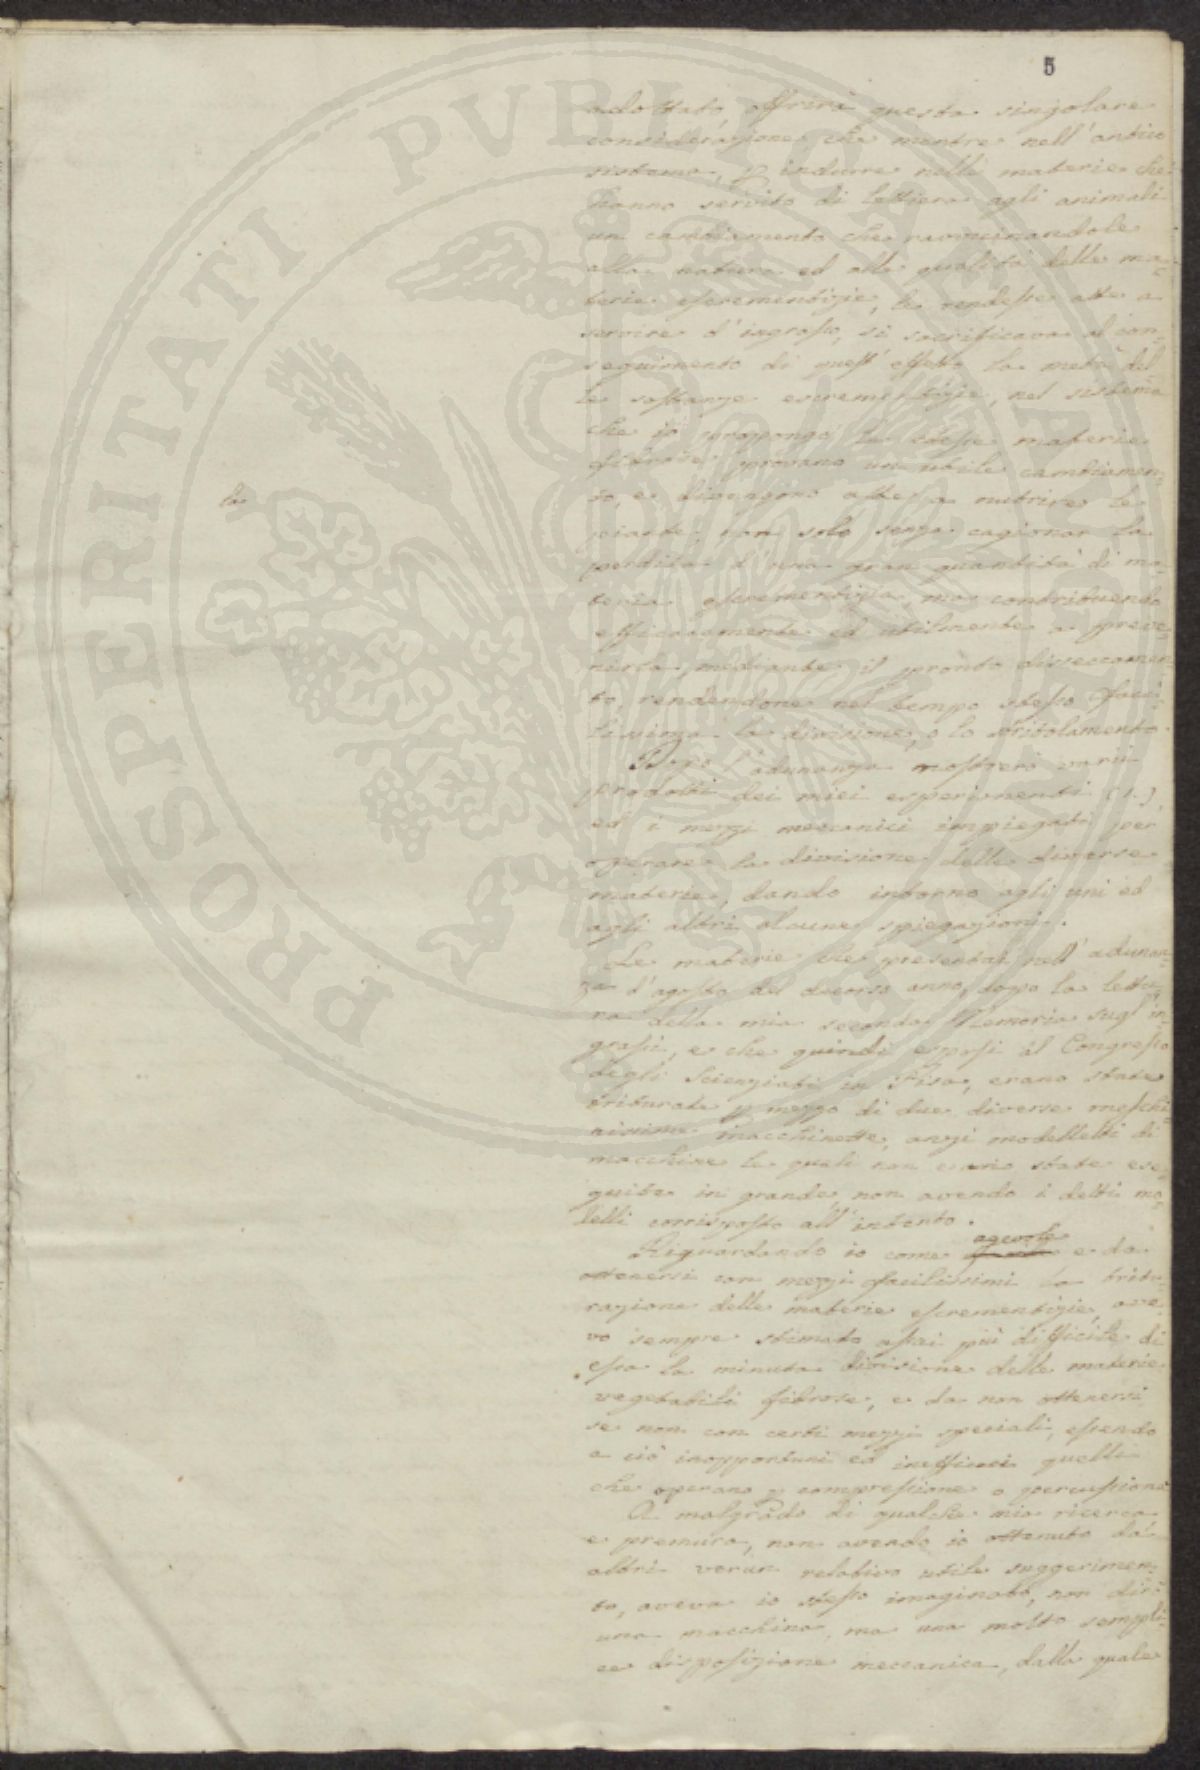 5
adottato, offrirà questa singolare
considerazione che mentre nell'antico
sistema, p indurre nelle materie che
hanno servito di lettiera agli animali
un cambiamento che ravvicinandole
alla natura ed alla qualità delle ma-
terie escrementizie, le rendesse atte a
servire d'ingrasso, si sacrificava al con-
seguimento di quest'effetto la metà del-
le sostanze escrementizie, nel sistema
che io propongo le stesse materie
fibrose provano un utile cambiamen-
to, e divengono atte a nutrire le
la
piante non solo senza cagionar la
perdita d'una gran quantità di ma-
teria escrementizia, ma contribuendo
efficacemente ed utilmente a preve-
nirla, mediante il pronto disseccamen-
to, rendendone nel tempo stesso faci-
lissima la divisione, o lo stritolamento.
Dopo l'adunanza mostrerò varii
prodotti dei miei esperimenti (1.)
ed i mezzi meccanici impiegati per
operare la divisione delle diverse
materie, dando intorno agli uni ed
agli altri alcune spiegazioni.
Le materie che presentai nell'adunan-
za d'agosto del decorso anno, dopo la lettu-
ra della mia seconda Memoria sugl'in-
grassi, e che quindi esposi al Congresso
degli Scienziati in Pisa, erano state
triturate p mezzo di due diverse meschi-
nissime macchinette, anzi modelletti di
macchine le quali non erano state ese-
guite in grande, non avendo i detti mo-
delli corrisposto all'intento.
agevole
Riguardando io come e da
ottenersi con mezzi facilissimi la tritu-
razione delle materie escrementizie, ave-
vo sempre stimato assai più difficile di
essa la minuta divisione delle materie
vegetabili fibrose, e da non ottenersi
se non con certi mezzi speciali, essendo
a ciò inopportuni ed inefficaci quelli
che operano p compressione o percussione
A malgrado di qualche mia ricerca
e premura, non avendo io ottenuto da
altri verun relativo utile suggerimen-
to, aveva io stesso imaginato, non dirò
una macchina, ma una molto sempli-
ce disposizione meccanica, dalla quale
PROSPERITATI PVBLICAE AVGENDAE